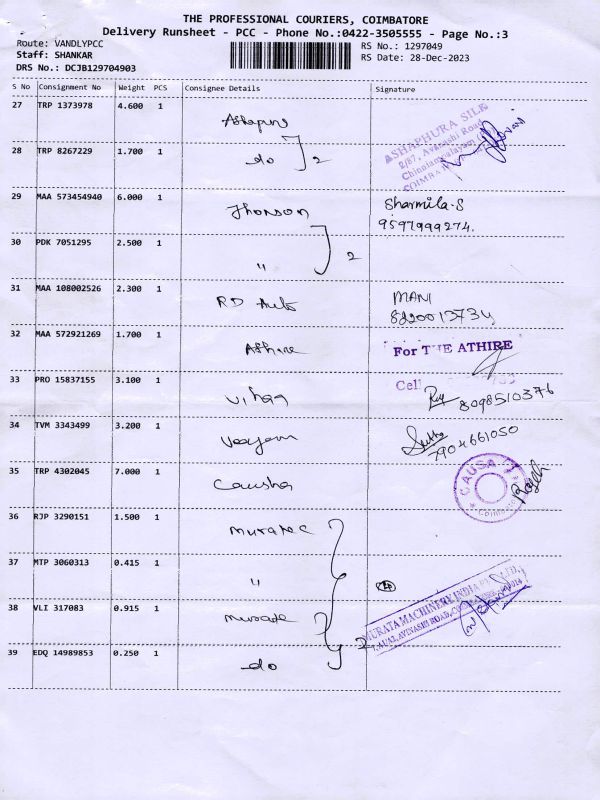 THE PROFESSIONAL COURIERS, COIMBATORE
Delivery Runsheet - PCC - Phone No.:0422-3505555 - Page No.:3
Route: VANDLYPCC
Staff: SHANKAR
DRS No.: DCJB129704903
RS No.: 1297049
RS Date: 28-Dec-2023
S No Consignment No Weight PCS Consignee Details Signature
27 TRP 1373978 4.600 1
ASHAPHURA SILK
2/87, Avinashi Road
28 TRP 8267229 1.700 1 do 2
29 MAA 573454940 6.000 1 Jhonson Sharmila.S
9597999274.
30 PDK 7051295 2.500 1 " 2
31 MAA 108002526 2.300 1 RD Auto MANI
8220013734
32 MAA 572921269 1.700 1 For THE ATHIRE
33 PRO 15837155 3.100 1 Cell
8098510376
34 TVM 3343499 3.200 1
7904661050
35 TRP 4302045 7.000 1 Causha CAUSA
36 RJP 3290151 1.500 1 Muratec
37 MTP 3060313 0.415 1 "
MURATA MACHINERY INDIA PVT. LTD.,
38 VLI 317083 0.915 1
39 EDQ 14989853 0.250 1 do